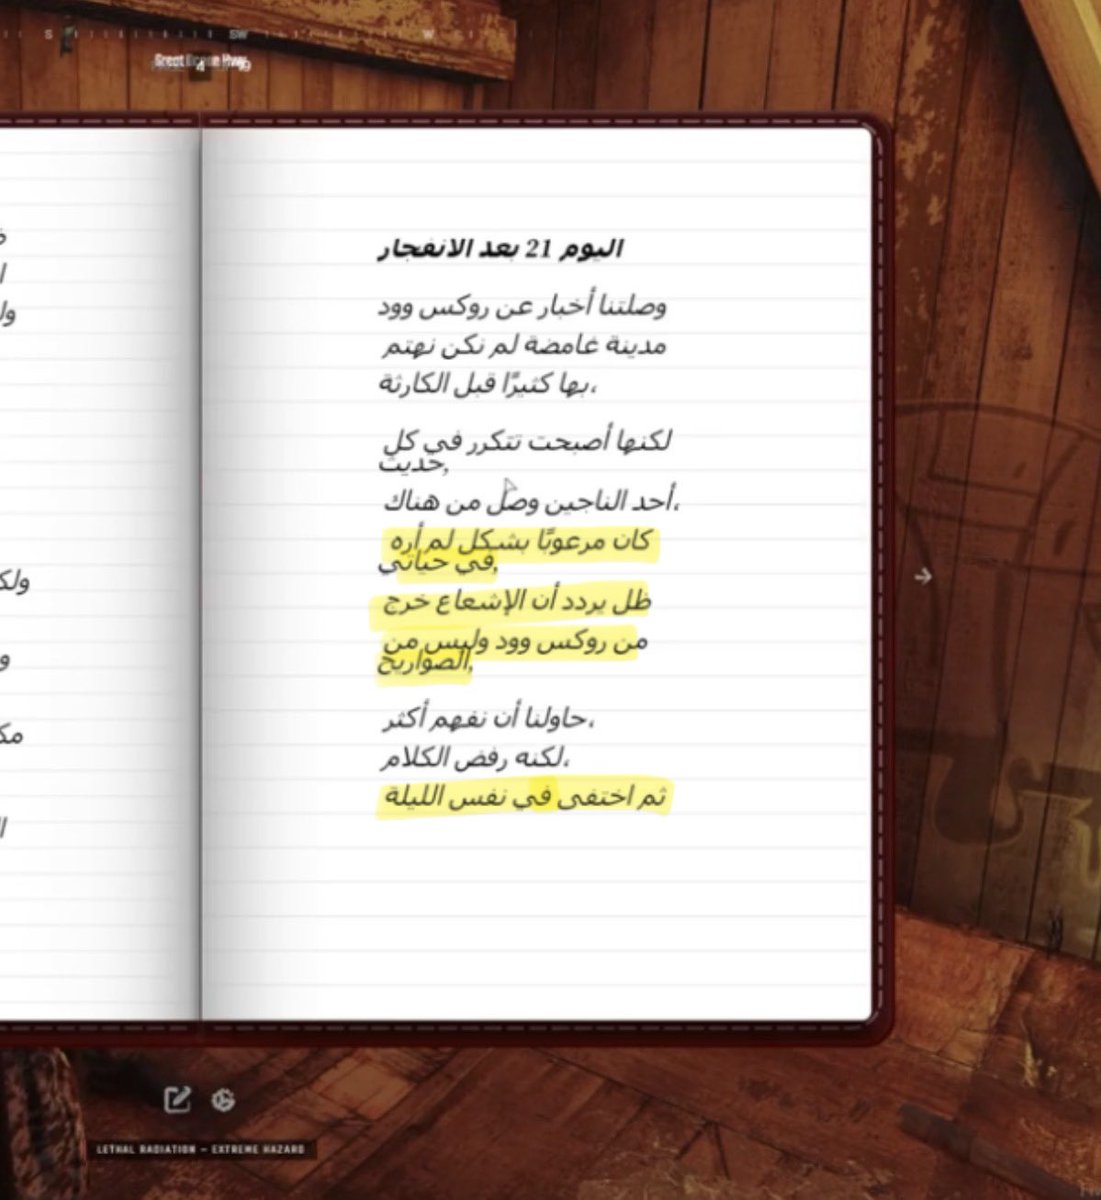 S SW W
اليوم 21 بعد الانفجار
وصلتنا أخبار عن روكس وود
مدينة غامضة لم نكن نهتم
بها كثيرًا قبل الكارثة،
لكنها أصبحت تتكرر في كل
حديث,
أحد الناجين وصل من هناك،
كان مرعوبًا بشكل لم أره
في حياتي,
ظل يردد أن الإشعاع خرج
من روكس وود وليس من
الصواريخ,
حاولنا أن نفهم أكثر،
لكنه رفض الكلام،
ثم اختفى في نفس الليلة
LETHAL RADIATION – EXTREME HAZARD